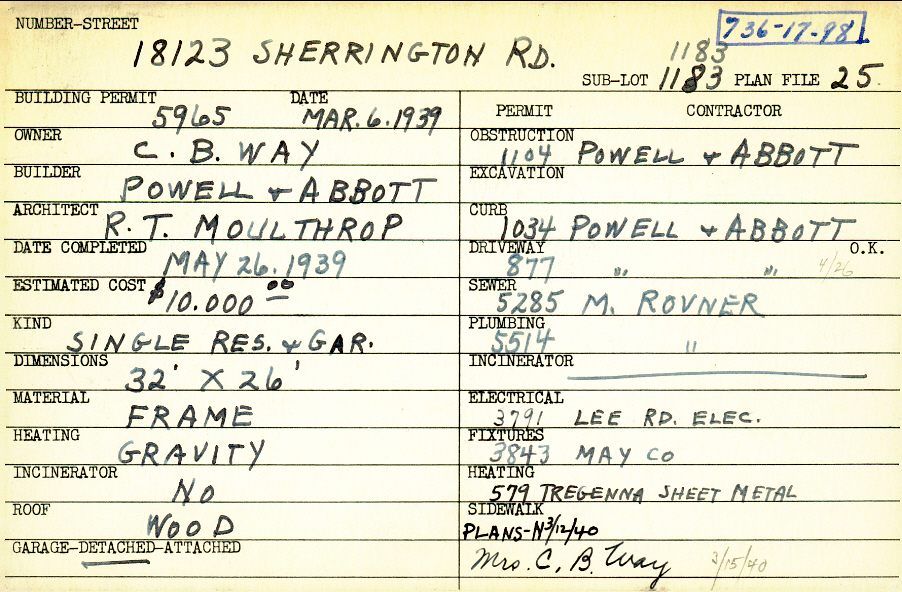 NUMBER-STREET
736-17-98
18123 SHERRINGTON RD.
1183
SUB-LOT 1183 PLAN FILE 25
BUILDING PERMIT DATE
5965 MAR. 6. 1939
OWNER
C. B. WAY
BUILDER
POWELL & ABBOTT
ARCHITECT
R. T. MOULTHROP
DATE COMPLETED
MAY 26. 1939
ESTIMATED COST
$10.000 00
KIND
SINGLE RES. & GAR.
DIMENSIONS
32' X 26'
MATERIAL
FRAME
HEATING
GRAVITY
INCINERATOR
NO
ROOF
WOOD
GARAGE-DETACHED-ATTACHED
PERMIT CONTRACTOR
OBSTRUCTION
1104 POWELL & ABBOTT
EXCAVATION
CURB
1034 POWELL & ABBOTT
DRIVEWAY O.K.
877 " " 4/26
SEWER
5285 M. ROVNER
PLUMBING
5514 "
INCINERATOR
ELECTRICAL
3791 LEE RD. ELEC.
FIXTURES
3843 MAY CO
HEATING
579 TREGENNA SHEET METAL
SIDEWALK
PLANS-N 3/12/40
Mrs. C. B. Way 3/15/40